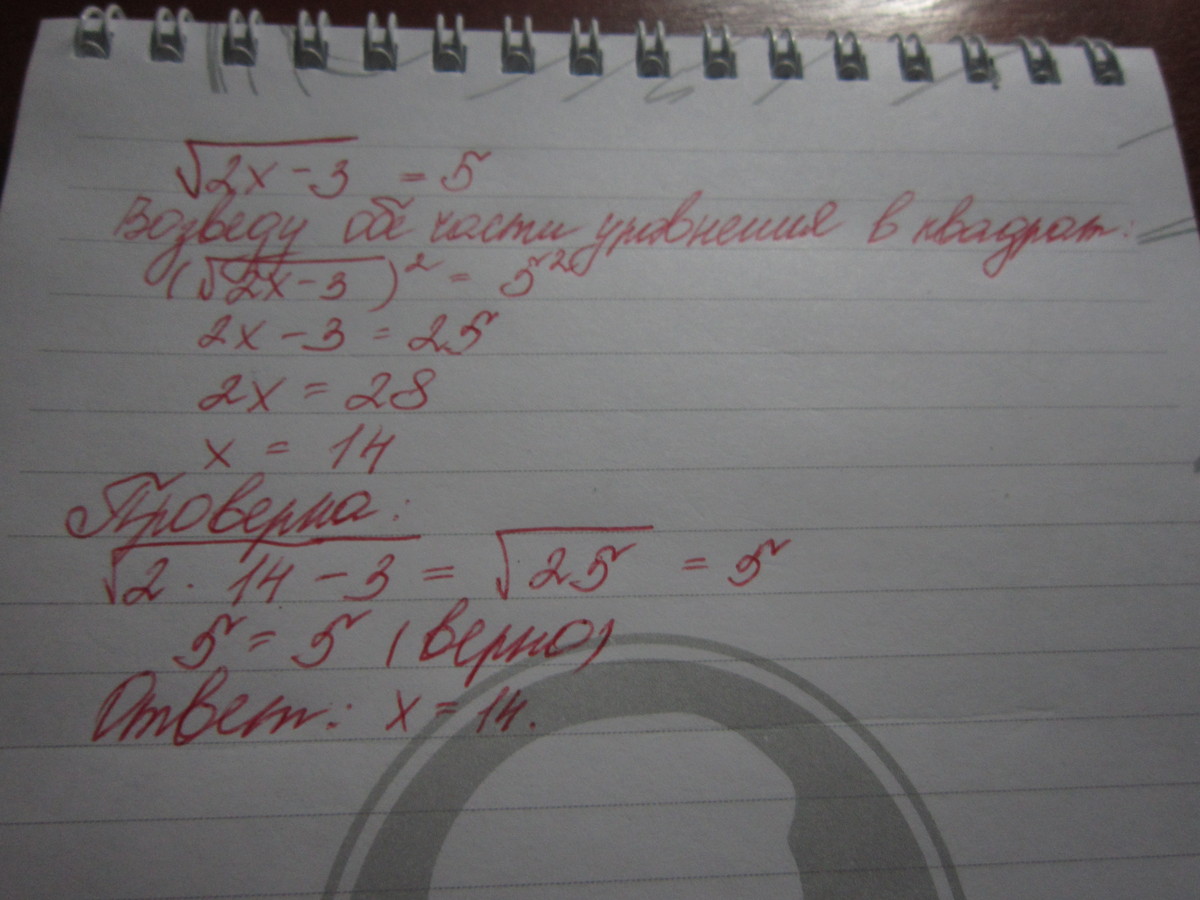 √2x-3 = 5
Возведу обе части уравнения в квадрат:
(√2x-3)² = 5²
2x-3 = 25
2x = 28
x = 14
Проверка:
√2·14-3 = √25 = 5
5 = 5 (верно)
Ответ: x = 14.